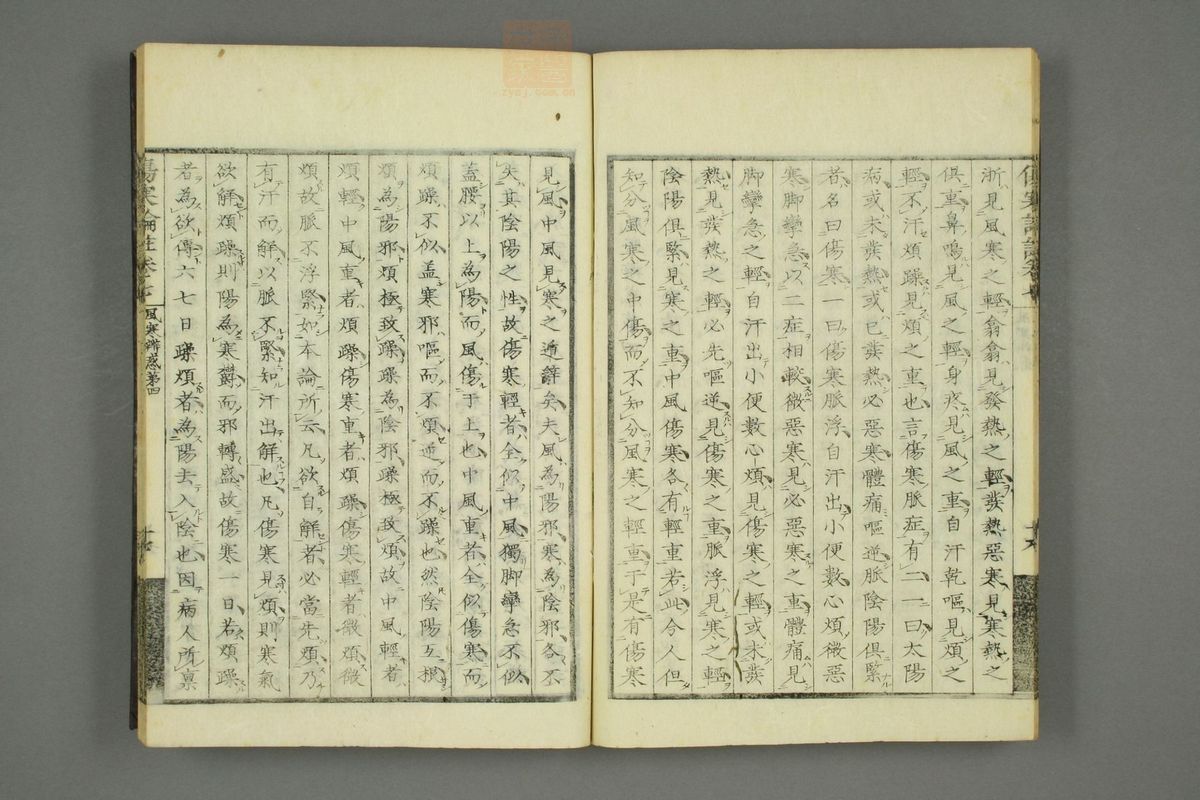 淅見風寒之輕翕翕見發熱之輕發熱惡寒見寒熱之
俱重鼻鳴見風之輕身疼見風之重自汗乾嘔見煩之
輕不汗煩躁見煩之重也言傷寒脈症有二一曰太陽
病或未發熱或已發熱必惡寒體痛嘔逆脈陰陽俱緊
者名曰傷寒一曰傷寒脈浮自汗出小便數心煩微惡
寒脚攣急以二症相較微惡寒見必惡寒之重體痛見
脚攣急之輕自汗出小便數心煩見傷寒之輕或未發
熱見發熱之輕必先嘔逆見傷寒之重脈浮見寒之輕
陰陽俱緊見寒之重中風傷寒各有輕重若此今人但
知分風寒之中傷而不知分風寒之輕重于是有傷寒
見風中風見寒之遁辭矣夫風為陽邪寒為陰邪各不
失其陰陽之性故傷寒輕者全似中風獨脚攣急不似
蓋腰以上為陽而風傷于上也中風重者全似傷寒而
煩躁不似蓋寒邪嘔而不煩逆而不躁也然陰陽互根
煩為陽邪煩極致躁躁為陰邪躁極致煩故中風輕者
煩輕中風重者煩躁傷寒重者煩躁傷寒輕者微煩微
煩故脈不浮緊如本論所云凡欲自解者必當先煩乃
有汗而解以脈不緊知汗出解也凡傷寒見煩則寒氣
欲解煩躁則陽為寒欝而邪轉盛故傷寒一日若煩躁
者為欲傳六七日躁煩者為陽去入陰也因病人所稟
風寒辨惑第四